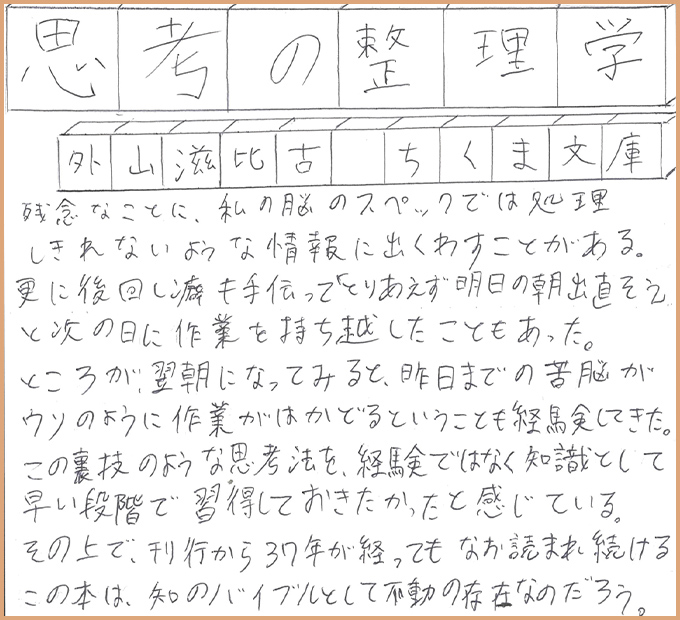 思考の整理学
外山滋比古 ちくま文庫
残念なことに、私の脳のスペックでは処理
しきれないような情報に出くわすことがある。
更に後回し癖も手伝って「とりあえず明日の朝出直そう」
と次の日に作業を持ち越したこともあった。
ところが、翌朝になってみると、昨日までの苦脳が
ウソのように作業がはかどるということも経験してきた。
この裏技のような思考法を、経験ではなく知識として
早い段階で習得しておきたかったと感じている。
その上で、刊行から37年が経ってもなお読まれ続ける
この本は、知のバイブルとして不動の存在なのだろう。